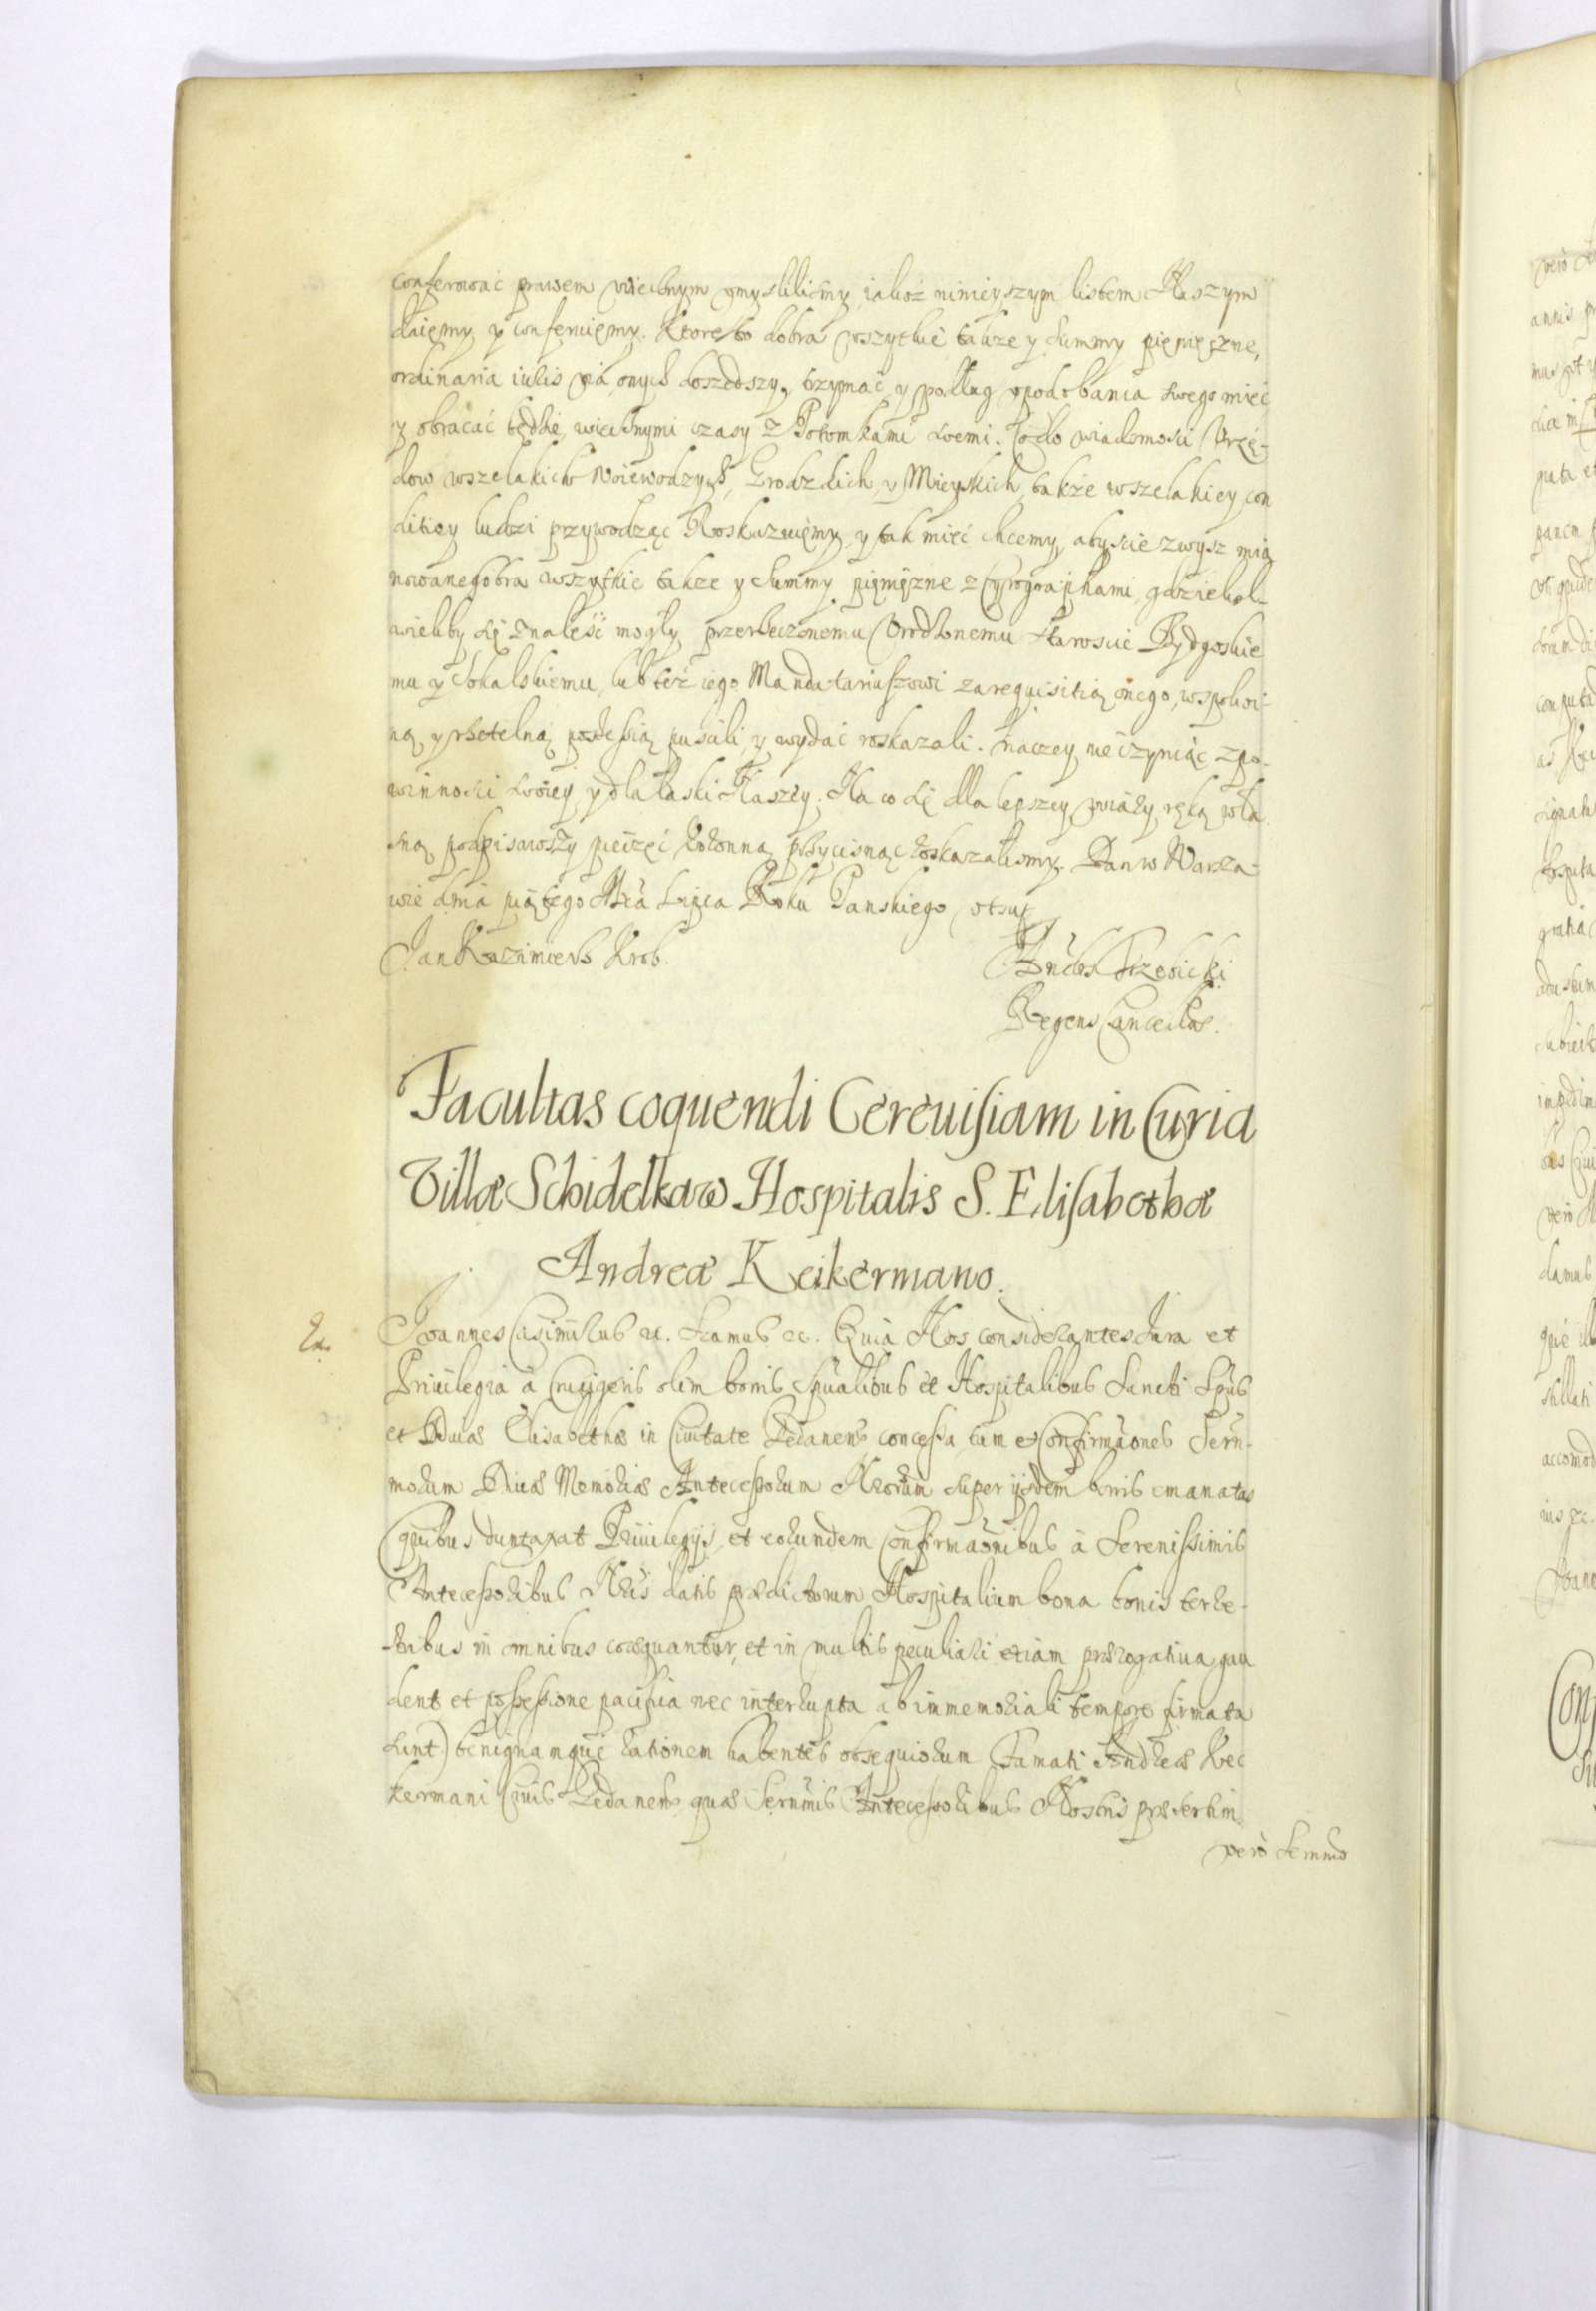 conferować prawem wiecznym umyslilismy, iakoż ninieyszym listem Naszym
daięmy y conferuięmy. Ktore to dobra wszytkie także y summy pięnięzne,
ordinaria iuris via onych doszedszy, trzymać y podług upodobania swego mieć
y obracać będzie wiecznymi czasy z Potomkami swemi. Co do wiadomosci Urzę-
dow wszelakich Woiewodzych, Grodzkich, y Mieyskich, także wszelakiey con
ditiey ludzi przywodząc Roskazuięmy y tak mieć chcemy, abyscie zwysz mia
nowane dobra wszytkie także y summy pięnięzne z Cyrographami, gdziekol-
wiekby się znaleść mogły przerzeczonemu Urodzonemu Staroscie Bydgoskie
mu y Sokalskiemu, lub też iego Mandatariuszowi za requisitią onego, w spokoi-
ną y rzetelną possessią puscili, y wydać roskazali. Inaczey nie czyniąc z po-
winnosci swoiey y dla łaski Naszey. Na co się dla lepszey wiary ręką wła
sną podpisawszy pieczęć koronną przycisnąc roskazalismy. Dan w Warsza-
wie dnia piątego Mca Lipca Roku Panskiego utsup
Jan Kazimierz Krol.
Andreas Trzebicki
Regens Cancellae.
Facultas coquendi Cereuisiam in Curia
Villæ Schidelkaw Hospitalis S. Elisabethæ
Andreæ Keikermano.
Joannes Casimirus etc. Sramus etc. Quia Nos considerantes Jura et
Priuilegia à Crucigeris olim bonis Spũalibus et Hospitalibus Sancti Spũs
et Diuæ Elisabethæ in Ciuitate Gedanens concessa, tum et Confirmãones Serñ-
morum Diuæ Memoriæ Antecessorum Nrorum super ijsdem bonis emanatas
(quibus duntaxat Priuilegijs, et eorundem Confirmaõnibus à Serenissimis
Antecessoribus Nris datis prædictorum Hospitalium bona bonis terre-
stribus in omnibus coæquantur, et in multis peculiari etiam prærogatiua gau
dent et possessione pacifica nec interrupta ab immemoriali tempore firmata
sint) benignamquè rationem habentes obsequiorum Famati Andreæ Kec
kermani Ciuis Gedanens, quæ Sernmis Antecessoribus Nostris præsertim
verò Sernmo